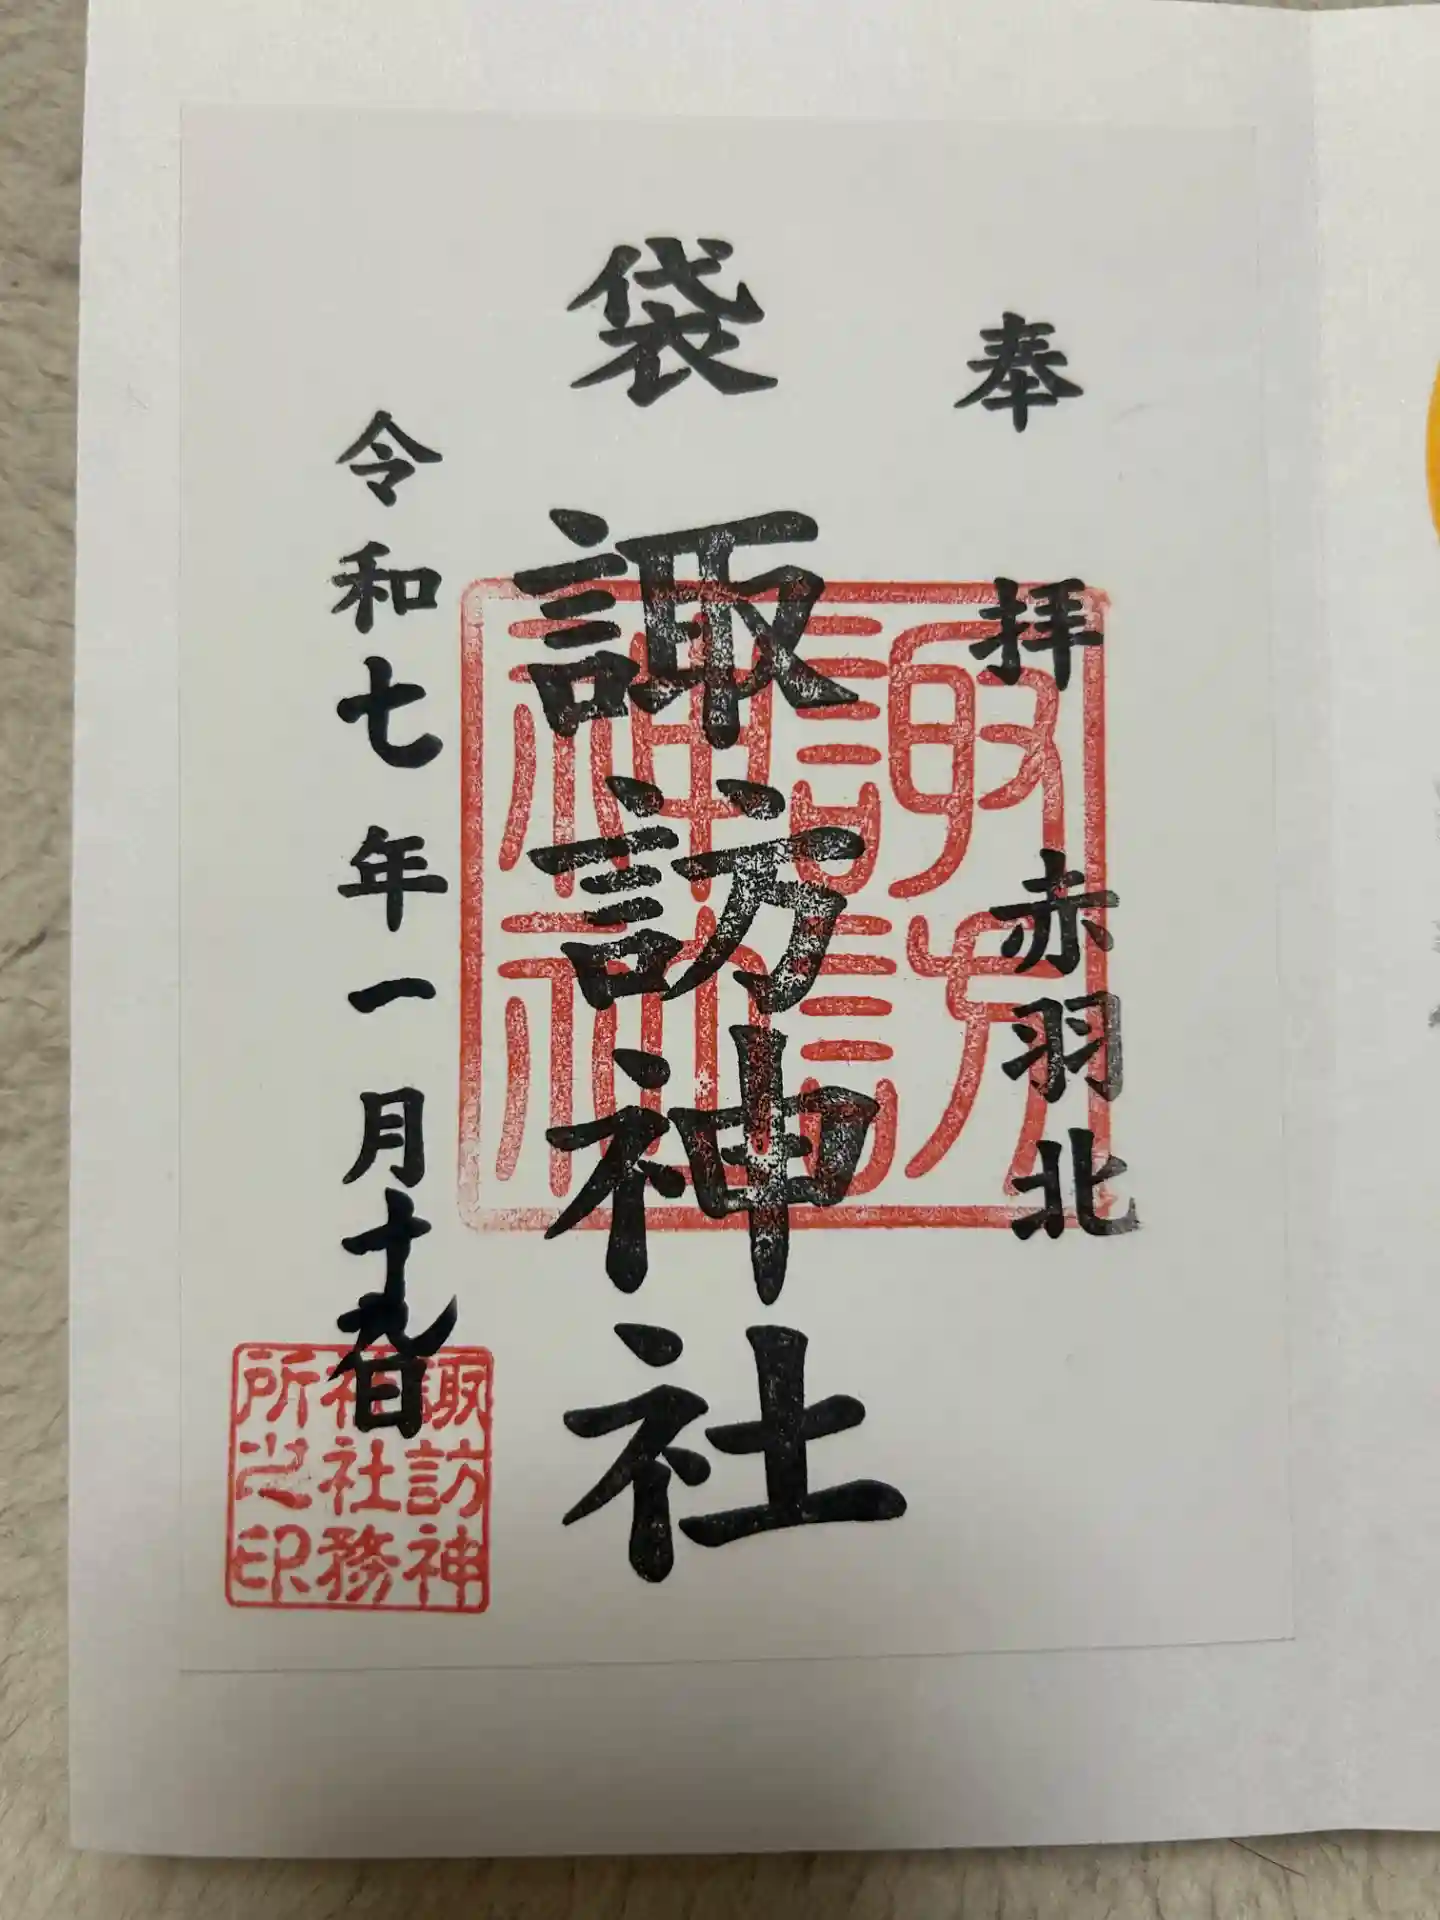 奉拝
赤羽北
袋
諏訪神社
令和七年一月十九日
諏訪神社
諏訪神
社社務
所之印